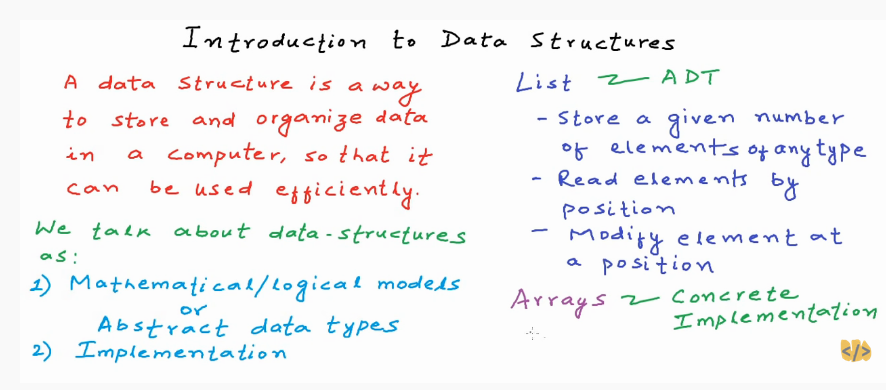 Introduction to Data Structures
A data structure is a way
to store and organize data
in a computer, so that it
can be used efficiently.
We talk about data-structures
as:
1) Mathematical/Logical models
or
Abstract data types
2) Implementation
List ADT
- Store a given number
of elements of any type
- Read elements by
position
- Modify element at
a position
Arrays Concrete
Implementation
</>